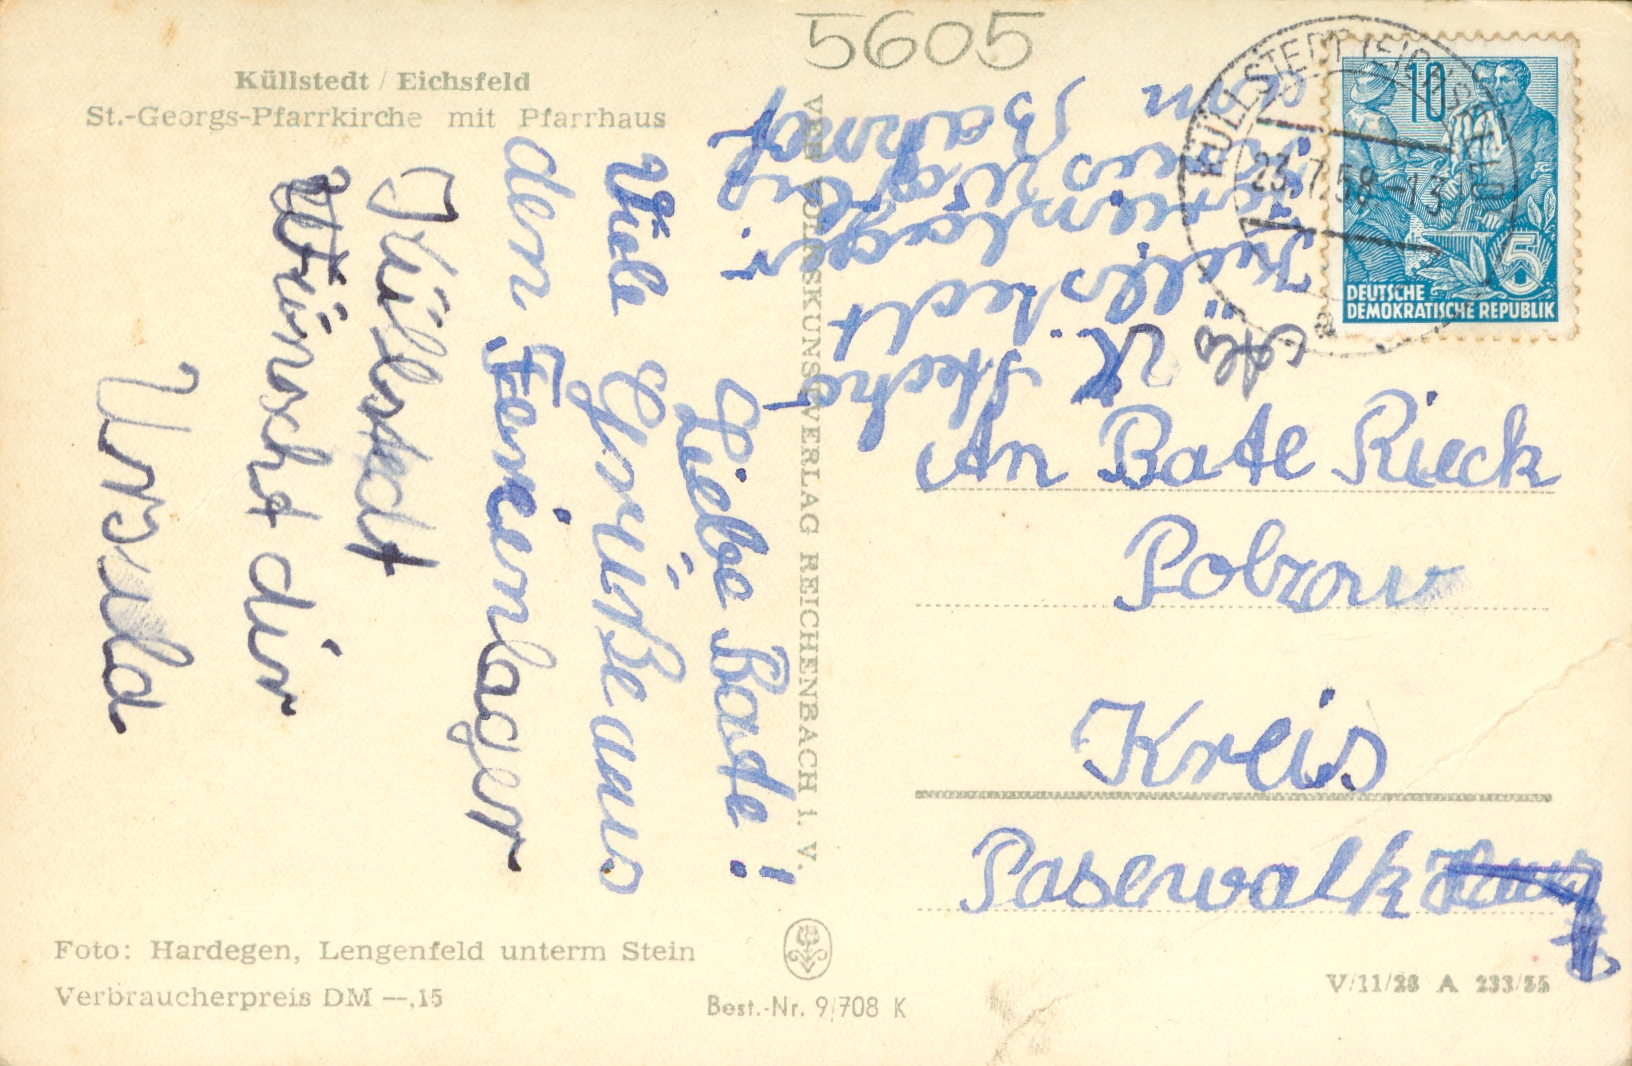 5605
Küllstedt / Eichsfeld
St.-Georgs-Pfarrkirche mit Pfarrhaus
Liebe Bate!
Viele Grüße aus
den Ferienlager
Küllstedt
Wünscht dir
Ursula
Küllstedt
An Bate Rieck
Polzow
Kreis
Pasewalk
KÜLLSTEDT (EICHSFELD)
23.7.58-13
a
10
5
DEUTSCHE
DEMOKRATISCHE REPUBLIK
VEB VOLKSKUNSTVERLAG REICHENBACH i. V.
Foto: Hardegen, Lengenfeld unterm Stein
Verbraucherpreis DM —,15
Best.-Nr. 9/708 K
V/11/28 A 233/55